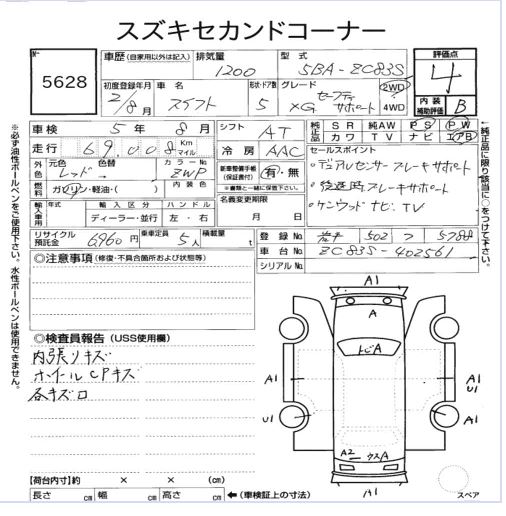 スズキセカンドコーナー
№
5628
車歴 (自家用以外は記入)
排気量
1200
型式
5BA-ZC83S
評価点
4
初度登録年月
2/8月
車名
スイフト
形状・ドア数
5
グレード
XG セーフティサポート
2WD
4WD
内装補助評価
B
車検 5年 8月
シフト AT
純正品 SR 純AW PS PW
革 カワ TV ナビ エアB
走行 69008 Km マイル
冷房 AAC
セールスポイント
・デュアルセンサーブレーキサポート
・後退時ブレーキサポート
・ケンウッドナビ、TV
外色 元色 レッド 色替
カラーNo ZWP
内装色
燃料 ガソリン・軽油・( )
新車整備手帳 (保証書付) 有・無
※書類と一緒に保管下さい。
輸入車用 年式
輸入区分 ディーラー・並行
ハンドル 左・右
名義変更期限
月 日
リサイクル預託金 6,960円
乗車定員 5人
積載量 t
登録No. 502 5788
車台No. ZC83S-402561
シリアルNo.
※必ず油性ボールペンをご使用下さい。水性ボールペンは使用できません。
純正品に限り該当に○をつけて下さい。
◎注意事項 (修復・不具合箇所および状態等)
◎検査員報告 (USS使用欄)
内張りキズ
ホイールCPキズ
各キズ
A1
A
トビA
A1
U1
A1
A1
U1
A2
クスA
A1
スペア
【荷台内寸】約 × × (cm)
長さ cm 幅 cm 高さ cm ←(車検証上の寸法)